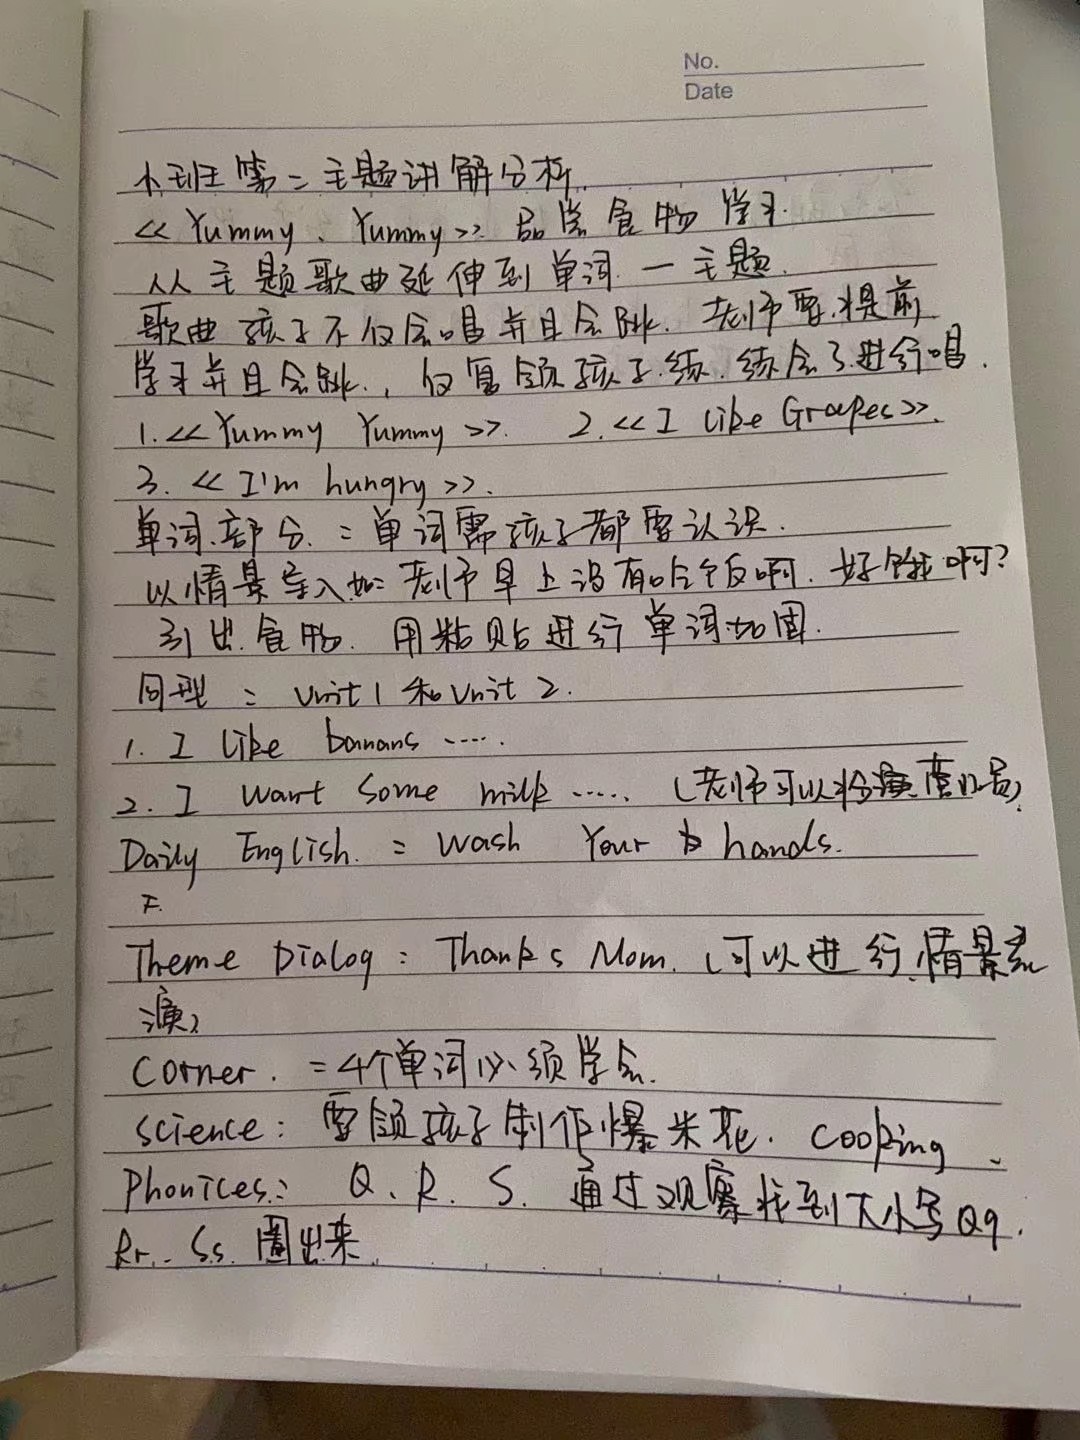 No.
Date
小班第二主题讲解分析.
《Yummy、Yummy》品尝食物 学习.
从主题歌曲延伸到单词. 一主题.
歌曲孩子不仅会唱并且会跳. 老师要提前
学习并且会跳., 反复领孩子练. 练会了进行唱.
1.《Yummy Yummy》. 2.《I Like Grapes》.
3.《I'm hungry》.
单词.部分.: 单词需孩子都要认识.
以情景导入如: 老师早上没有吃饭啊. 好饿啊?
引出.食物. 用粘贴进行单词加固.
句型: Unit 1 和 Unit 2.
1. I Like banans ....
2. I want some milk ..... (老师可以扮演营业员)
Daily English. : Wash Your hands.
F.
Theme Dialog: Thanks Mom. (可以进行.情景表
演)
Corner. : 4个单词必须学会.
Science: 要领孩子制作爆米花. Cooking.
Phonices: Q. R. S. 通过观察找到大小写Qq.
Rr.. Ss. 圈出来.